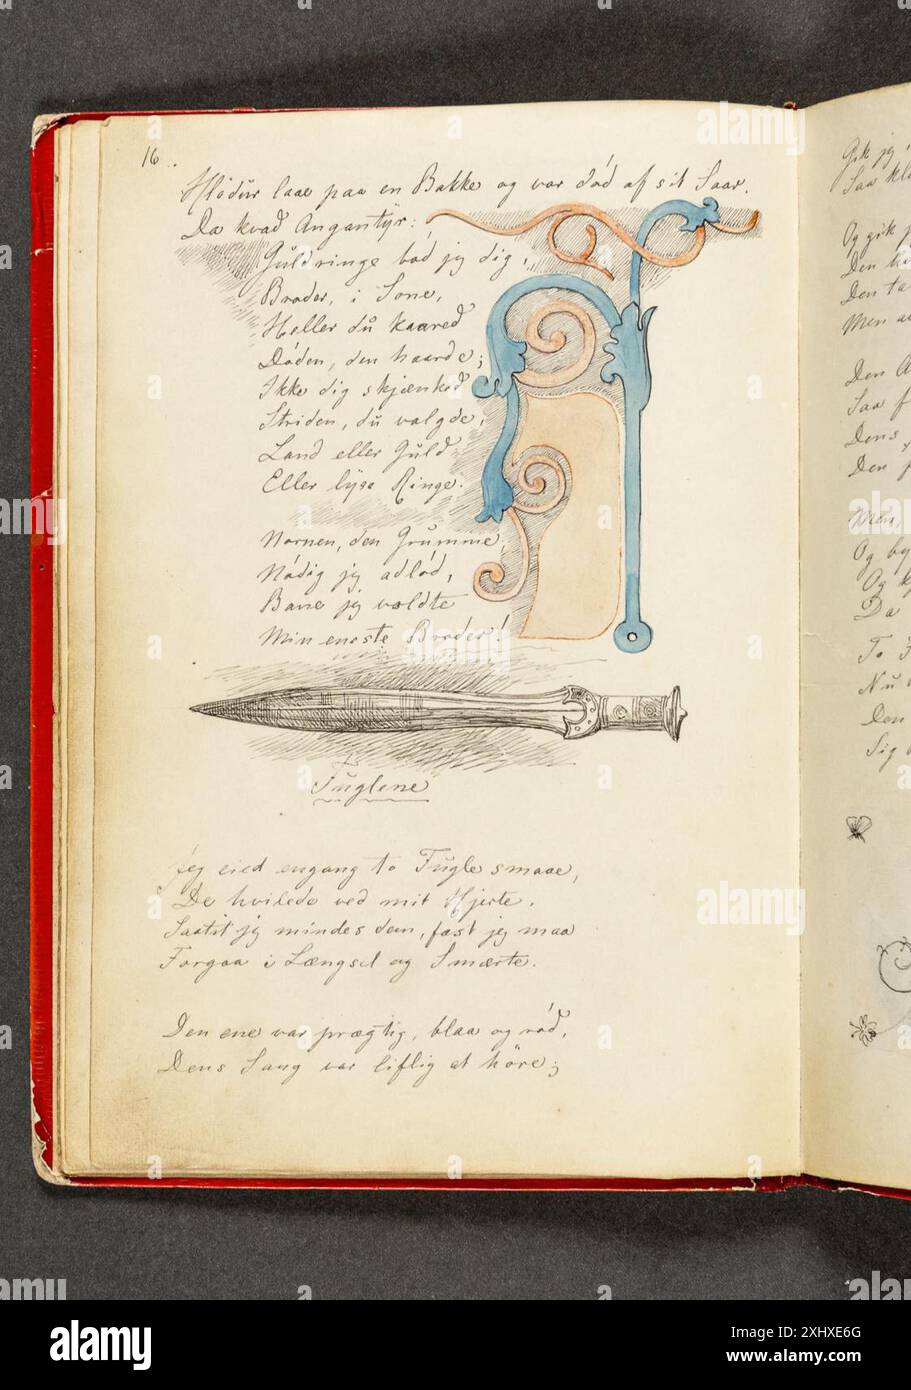 16.
Hlödur laae paa en Bakke og var död af sit Saar.
Da kvad Angantýr:
Guldringe böd jeg dig,
Broder, i Sone,
Heller dŭ kaared
Döden, den haarde;
Ikke dig skjænked
Striden, dŭ valgde,
Land eller Gŭld
Eller lyse Ringe.
Nornen, den Grŭmme
Nödig jeg adlöd,
Bane jeg voldte
Min eneste Broder!
Fŭglene
Jeg eied engang to Fŭgle smaae,
De hvilede ved mit Hjerte.
Saatit jeg mindes dem, fast jeg maa
Forgaa i Længsel og Smærte.
Den ene var prægtig, blaa og röd,
Dens Sang var liflig at höre;
Gik jeg
Saa
Og gik
Den
Den
Men
Den
Saa
Dens
Den
Men,
Og
Og
Da
To
Nŭ
Den
Sig
alamy
Image ID: 2XHXE6G
www.alamy.com